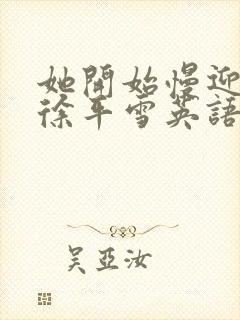 她開始慢迎
徐平雪英語
吴亞汝